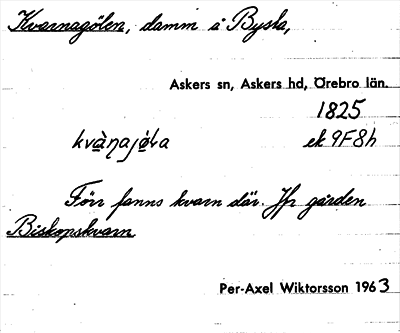 Kvarnagölen, damm å Bysta,
Askers sn, Askers hd, Örebro län.
1825
kvàṇajø̀la ek 9F8h
Förr fanns kvarn där. Jfr gården
Biskopskvarn
Per-Axel Wiktorsson 1963